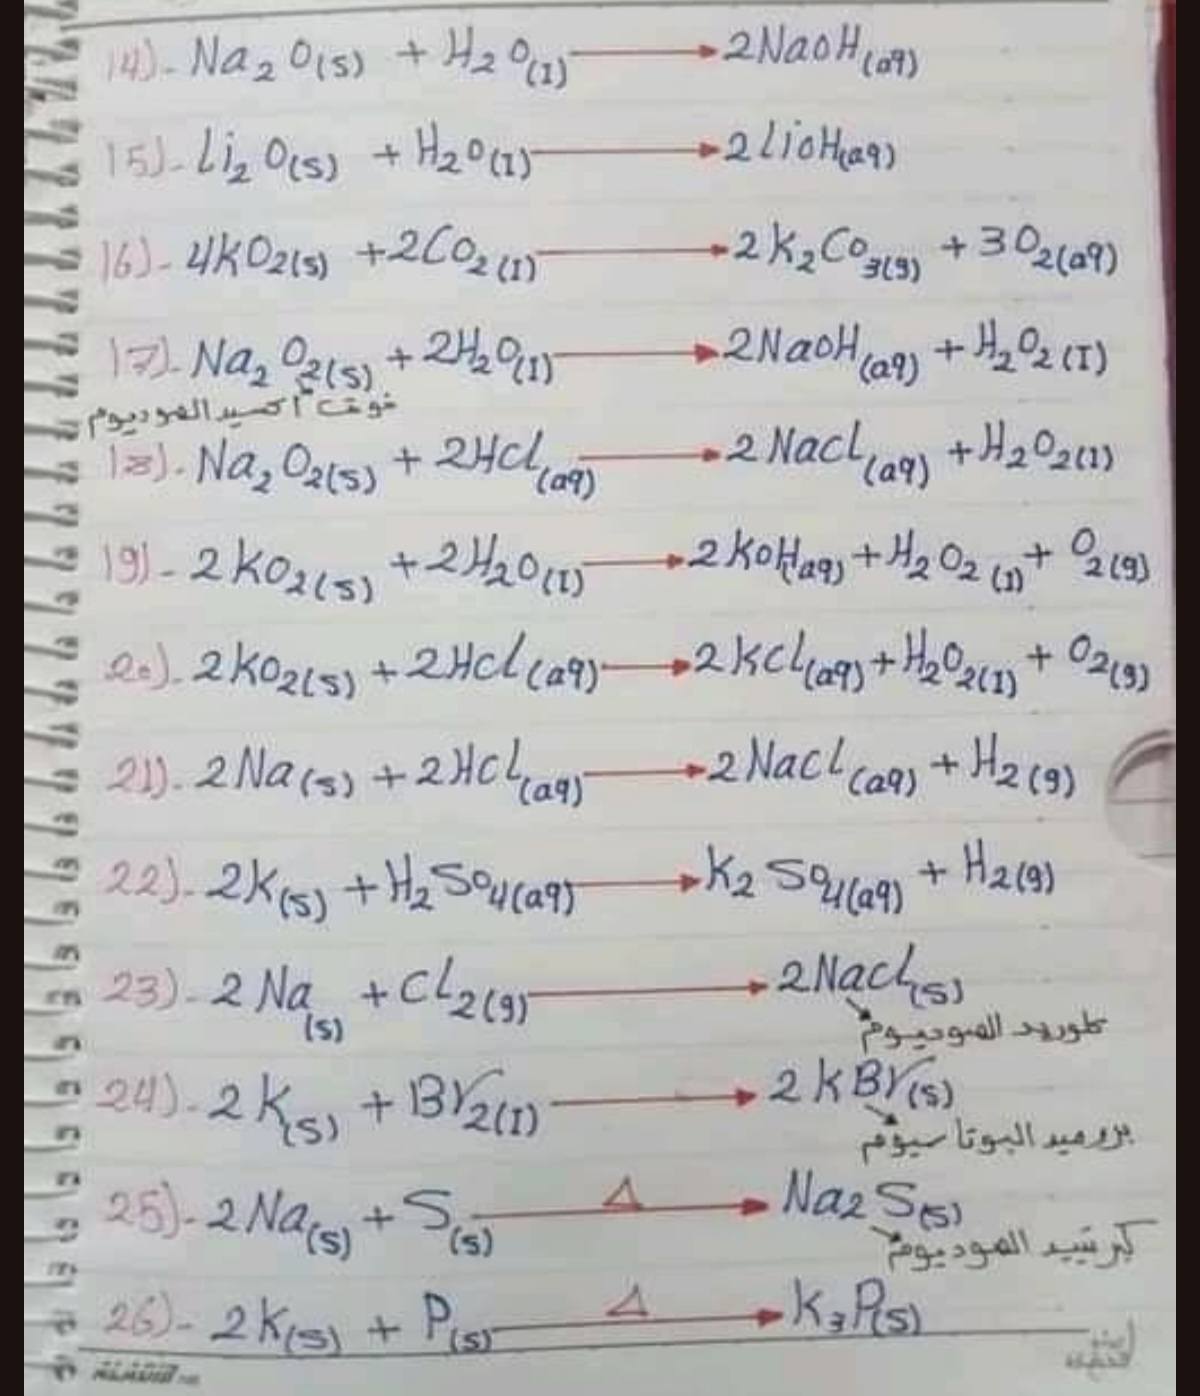 14)- Na₂O(s) + H₂O(l) → 2NaOH(aq)
15)- Li₂O(s) + H₂O(l) → 2LiOH(aq)
16)- 4KO₂(s) + 2CO₂(l) → 2K₂CO₃(g) + 3O₂(aq)
17)- Na₂O₂(s) + 2H₂O(l) → 2NaOH(aq) + H₂O₂(l)
فوق أكسيد الصوديوم
18)- Na₂O₂(s) + 2HCl(aq) → 2NaCl(aq) + H₂O₂(l)
19)- 2KO₂(s) + 2H₂O(l) → 2KOH(aq) + H₂O₂(l) + O₂(g)
20)- 2KO₂(s) + 2HCl(aq) → 2KCl(aq) + H₂O₂(l) + O₂(g)
21)- 2Na(s) + 2HCl(aq) → 2NaCl(aq) + H₂(g)
22)- 2K(s) + H₂SO₄(aq) → K₂SO₄(aq) + H₂(g)
23)- 2Na(s) + Cl₂(g) → 2NaCl(s)
كلوريد الصوديوم
24)- 2K(s) + Br₂(l) → 2KBr(s)
بروميد البوتاسيوم
25)- 2Na(s) + S(s) Δ→ Na₂S(s)
كبرتيد الصوديوم
26)- 2K(s) + P(s) Δ→ K₃P(s)